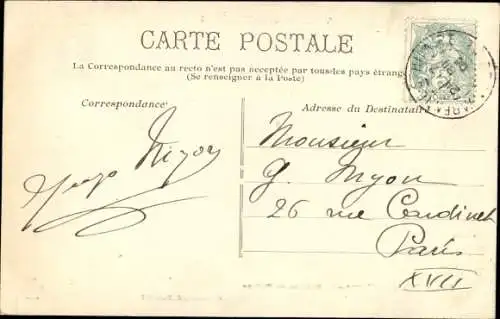 CARTE POSTALE
La Correspondance au recto n'est pas acceptée par tous les pays étrang
(Se renseigner à la Poste)
Correspondance
Adresse du Destinataire
Monsieur
G. Myon
26 rue Cardinet
Paris
XVII